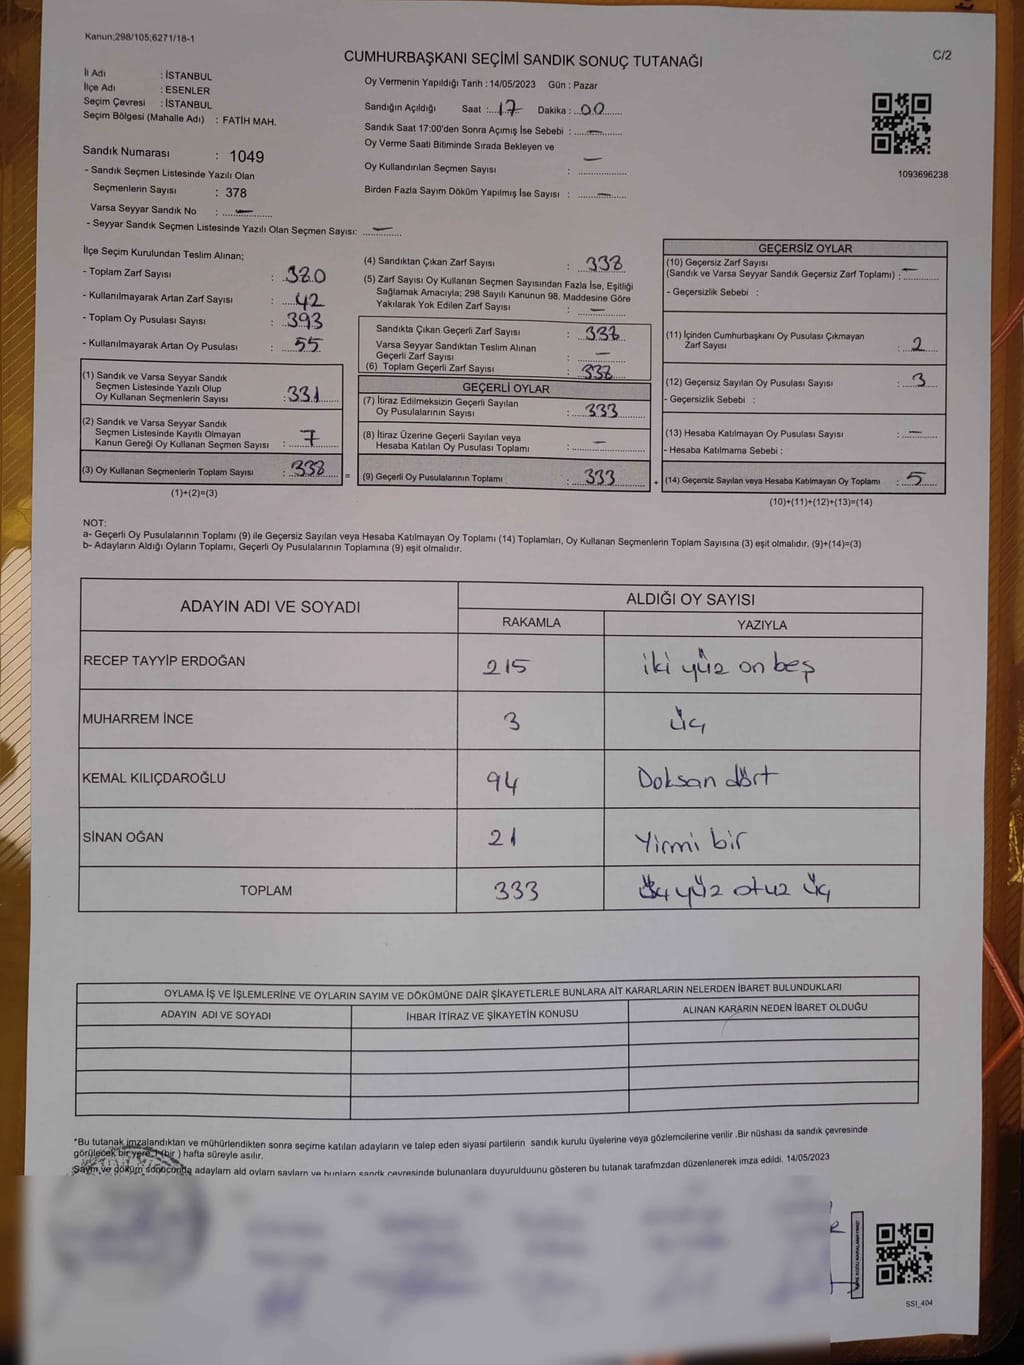 Kanun;298/105;6271/18-1
CUMHURBAŞKANI SEÇİMİ SANDIK SONUÇ TUTANAĞI
C/2
İl Adı : İSTANBUL
İlçe Adı : ESENLER
Seçim Çevresi : İSTANBUL
Seçim Bölgesi (Mahalle Adı) : FATİH MAH.
Sandık Numarası : 1049
- Sandık Seçmen Listesinde Yazılı Olan
Seçmenlerin Sayısı : 378
Varsa Seyyar Sandık No : —
- Seyyar Sandık Seçmen Listesinde Yazılı Olan Seçmen Sayısı: —
Oy Vermenin Yapıldığı Tarih : 14/05/2023 Gün : Pazar
Sandığın Açıldığı Saat : 17 Dakika : 00
Sandık Saat 17:00'den Sonra Açımış İse Sebebi : —
Oy Verme Saati Bitiminde Sırada Bekleyen ve
Oy Kullandırılan Seçmen Sayısı : —
Birden Fazla Sayım Döküm Yapılmış İse Sayısı : —
1093696238
İlçe Seçim Kurulundan Teslim Alınan;
- Toplam Zarf Sayısı : 380
- Kullanılmayarak Artan Zarf Sayısı : 42
- Toplam Oy Pusulası Sayısı : 393
- Kullanılmayarak Artan Oy Pusulası : 55
(1) Sandık ve Varsa Seyyar Sandık
Seçmen Listesinde Yazılı Olup
Oy Kullanan Seçmenlerin Sayısı : 331
(2) Sandık ve Varsa Seyyar Sandık
Seçmen Listesinde Kayıtlı Olmayan
Kanun Gereği Oy Kullanan Seçmen Sayısı : 7
(3) Oy Kullanan Seçmenlerin Toplam Sayısı : 338 =
(1)+(2)=(3)
(4) Sandıktan Çıkan Zarf Sayısı : 338
(5) Zarf Sayısı Oy Kullanan Seçmen Sayısından Fazla İse, Eşitliği
Sağlamak Amacıyla; 298 Sayılı Kanunun 98. Maddesine Göre
Yakılarak Yok Edilen Zarf Sayısı : —
Sandıkta Çıkan Geçerli Zarf Sayısı : 338
Varsa Seyyar Sandıktan Teslim Alınan
Geçerli Zarf Sayısı : —
(6) Toplam Geçerli Zarf Sayısı : 338
GEÇERLİ OYLAR
(7) İtiraz Edilmeksizin Geçerli Sayılan
Oy Pusulalarının Sayısı : 333
(8) İtiraz Üzerine Geçerli Sayılan veya
Hesaba Katılan Oy Pusulası Toplamı : —
(9) Geçerli Oy Pusulalarının Toplamı : 333 +
GEÇERSİZ OYLAR
(10) Geçersiz Zarf Sayısı
(Sandık ve Varsa Seyyar Sandık Geçersiz Zarf Toplamı) : —
- Geçersizlik Sebebi :
(11) İçinden Cumhurbaşkanı Oy Pusulası Çıkmayan
Zarf Sayısı : 2
(12) Geçersiz Sayılan Oy Pusulası Sayısı : 3
- Geçersizlik Sebebi :
(13) Hesaba Katılmayan Oy Pusulası Sayısı : —
- Hesaba Katılmama Sebebi :
(14) Geçersiz Sayılan veya Hesaba Katılmayan Oy Toplamı : 5
(10)+(11)+(12)+(13)=(14)
NOT:
a- Geçerli Oy Pusulalarının Toplamı (9) ile Geçersiz Sayılan veya Hesaba Katılmayan Oy Toplamı (14) Toplamları, Oy Kullanan Seçmenlerin Toplam Sayısına (3) eşit olmalıdır. (9)+(14)=(3)
b- Adayların Aldığı Oyların Toplamı, Geçerli Oy Pusulalarının Toplamına (9) eşit olmalıdır.
ADAYIN ADI VE SOYADI ALDIĞI OY SAYISI
RAKAMLA YAZIYLA
RECEP TAYYİP ERDOĞAN 215 iki yüz on beş
MUHARREM İNCE 3 üç
KEMAL KILIÇDAROĞLU 94 Doksan dört
SİNAN OĞAN 21 Yirmi bir
TOPLAM 333 üç yüz otuz üç
OYLAMA İŞ VE İŞLEMLERİNE VE OYLARIN SAYIM VE DÖKÜMÜNE DAİR ŞİKAYETLERLE BUNLARA AİT KARARLARIN NELERDEN İBARET BULUNDUKLARI
ADAYIN ADI VE SOYADI İHBAR İTİRAZ VE ŞİKAYETİN KONUSU ALINAN KARARIN NEDEN İBARET OLDUĞU
*Bu tutanak imzalandıktan ve mühürlendikten sonra seçime katılan adayların ve talep eden siyasi partilerin sandık kurulu üyelerine veya gözlemcilerine verilir .Bir nüshası da sandık çevresinde
görülecek bir yere 1 (bir ) hafta süreyle asılır.
Sayım ve döküm sonucunda adaylarn ald oylarn sayların ve bunların sandk çevresinde bulunanlara duyurulduunu gösteren bu tutanak tarafmzdan düzenlenerek imza edildi. 14/05/2023
SSI_404